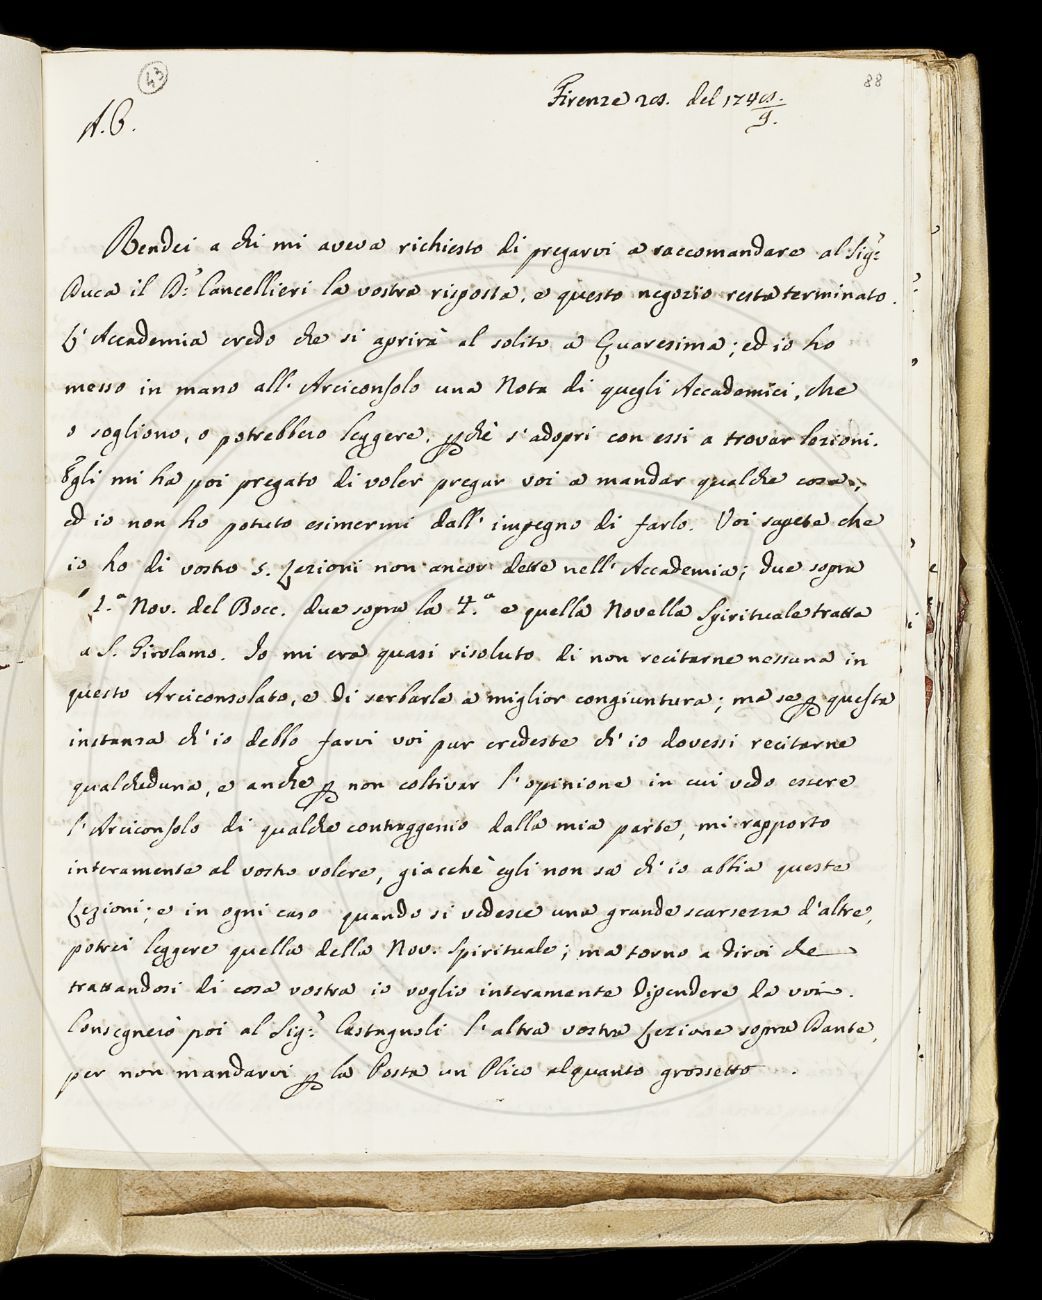 43
88
Firenze 28. del 1748/9.
A. C.
Rendei a chi mi aveva richiesto di pregarvi a raccomandare al Sig.r
Duca il D.r Cancellieri la vostra risposta, e questo negozio resta terminato.
L'Accademia credo che si aprirà al solito a Quaresima; ed io ho
messo in mano all'Arciconsolo una Nota di quegli Accademici, che
o sogliono, o potrebbero leggere, pchè s'adopri con essi a trovar lezioni.
Egli mi ha poi pregato di voler pregar voi a mandar qualche cosa;
ed io non ho potuto esimermi dall'impegno di farlo. Voi sapete che
io ho di vostro 5. Lezioni non ancor dette nell'Accademia; due sopra
1.a Nov. del Bocc. due sopra la 4.a e quella Novella Spirituale tratta
a S. Girolamo. Io mi era quasi risoluto di non recitarne nessuna in
questo Arciconsolato, e di serbarle a miglior congiuntura; ma se p questa
instanza ch'io debbo farvi voi pur credeste ch'io dovessi recitarne
qualcheduna, e anche p non coltivar l'opinione in cui vedo essere
l'Arciconsolo di qualche contraggenio dalla mia parte, mi rapporto
interamente al vostro volere, giacchè egli non sa ch'io abbia queste
Lezioni; e in ogni caso quando si vedesse una grande scarsezza d'altre,
potrei leggere quella della Nov. Spirituale; ma torno a dirvi che
trattandosi di cosa vostra io voglio interamente dipendere da voi.
Consegnerò poi al Sig.r Castagnoli l'altra vostra Lezione sopra Dante,
per non mandarvi p la Posta un Plico alquanto grossetto.